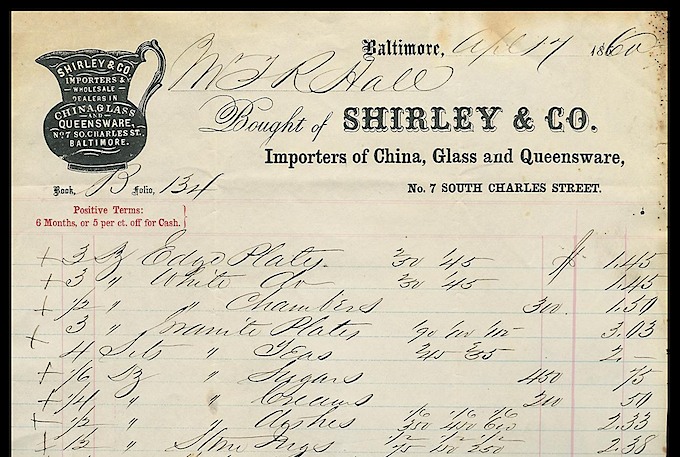 SHIRLEY & CO.
IMPORTERS &
WHOLESALE
DEALERS IN
CHINA, GLASS
AND
QUEENSWARE.
No. 7 SO. CHARLES ST.
BALTIMORE.
Baltimore, Apl 17 1860
Mr T R Hall
Bought of SHIRLEY & CO.
Importers of China, Glass and Queensware,
No. 7 SOUTH CHARLES STREET.
Book, B Folio, 134
Positive Terms:
6 Months, or 5 per ct. off for Cash.
+ 3 Dz Edge Plates 2/50 1/45 $ 1.45
+ 3 " White Do 2/50 1/45 1.45
+ 1/2 " " Chambers 300 1.50
+ 3 " Granite Plates 1/90 1/100 3.03
4 Sets " Teas 2/45 2/55 2. —
+ 1/6 Dz " Sugars 450 75
+ 1/4 " " Creams 200 50
+ 1/2 " " Dishes 1/6 350 1/6 450 1/6 600 2.33
+ " Stone Jugs 1/2 75 1/2 150 1/2 250 2.38